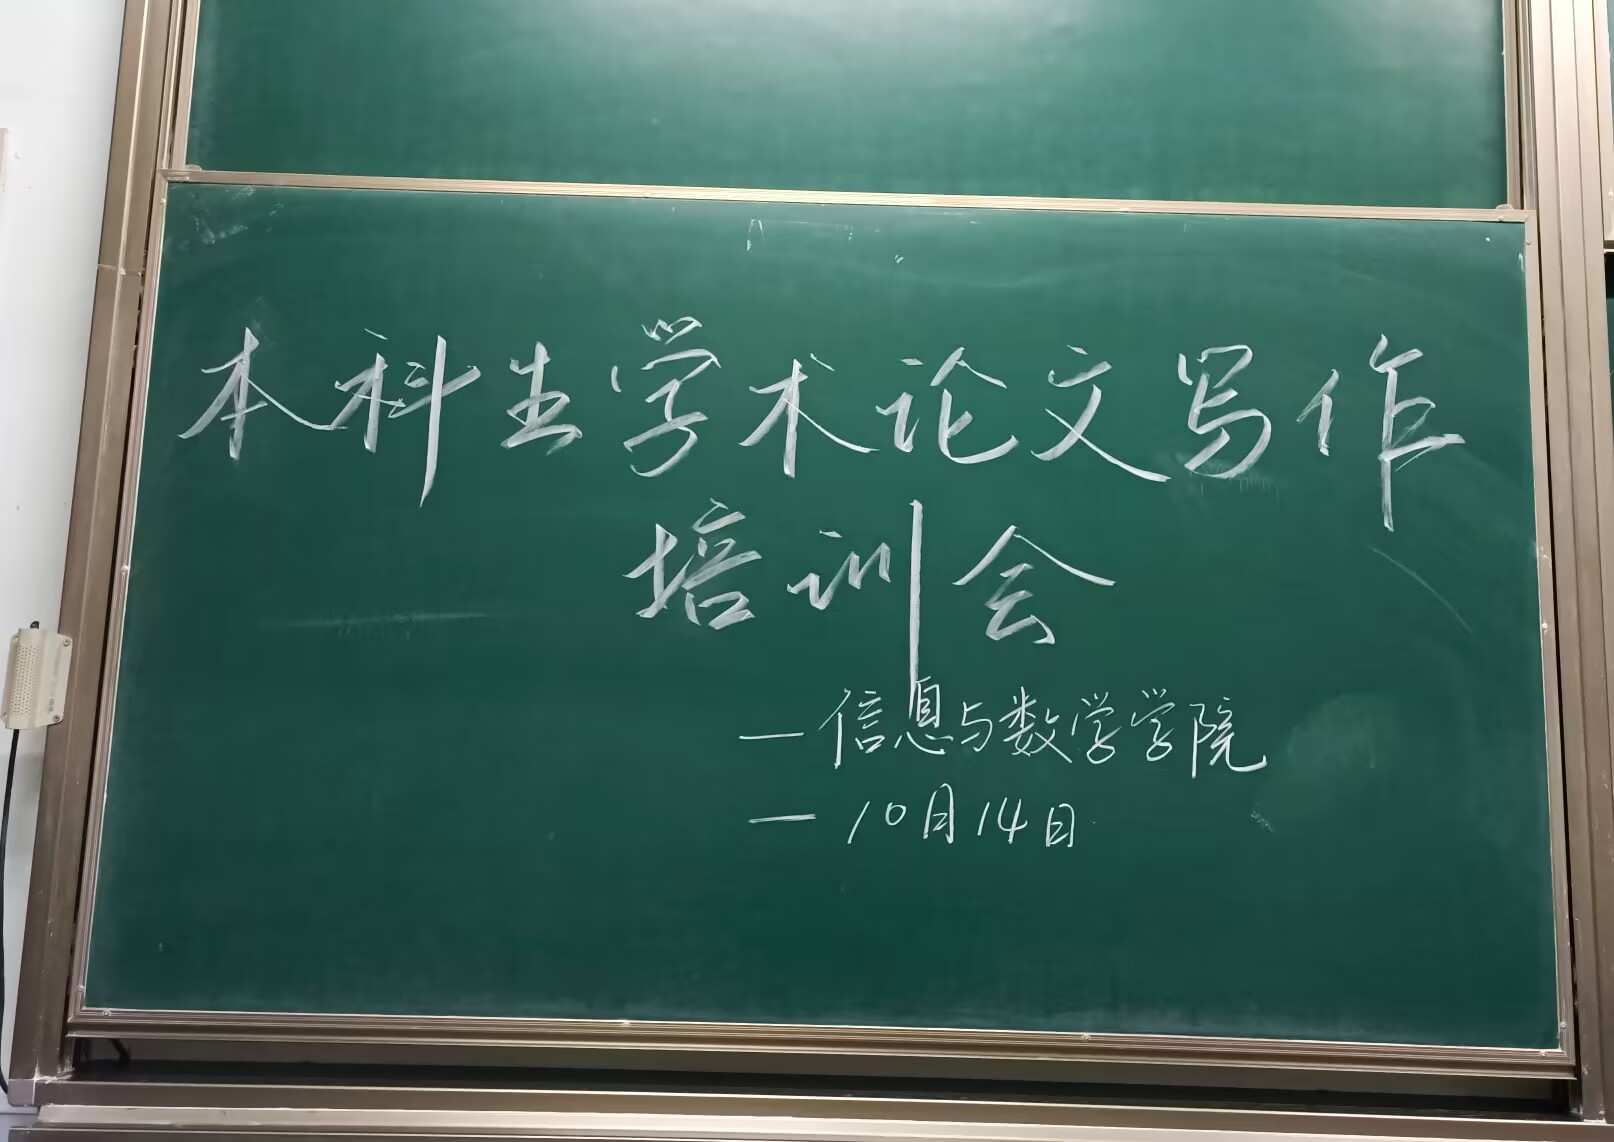 本科生学术论文写作
培训会
—信息与数学学院
—10月14日